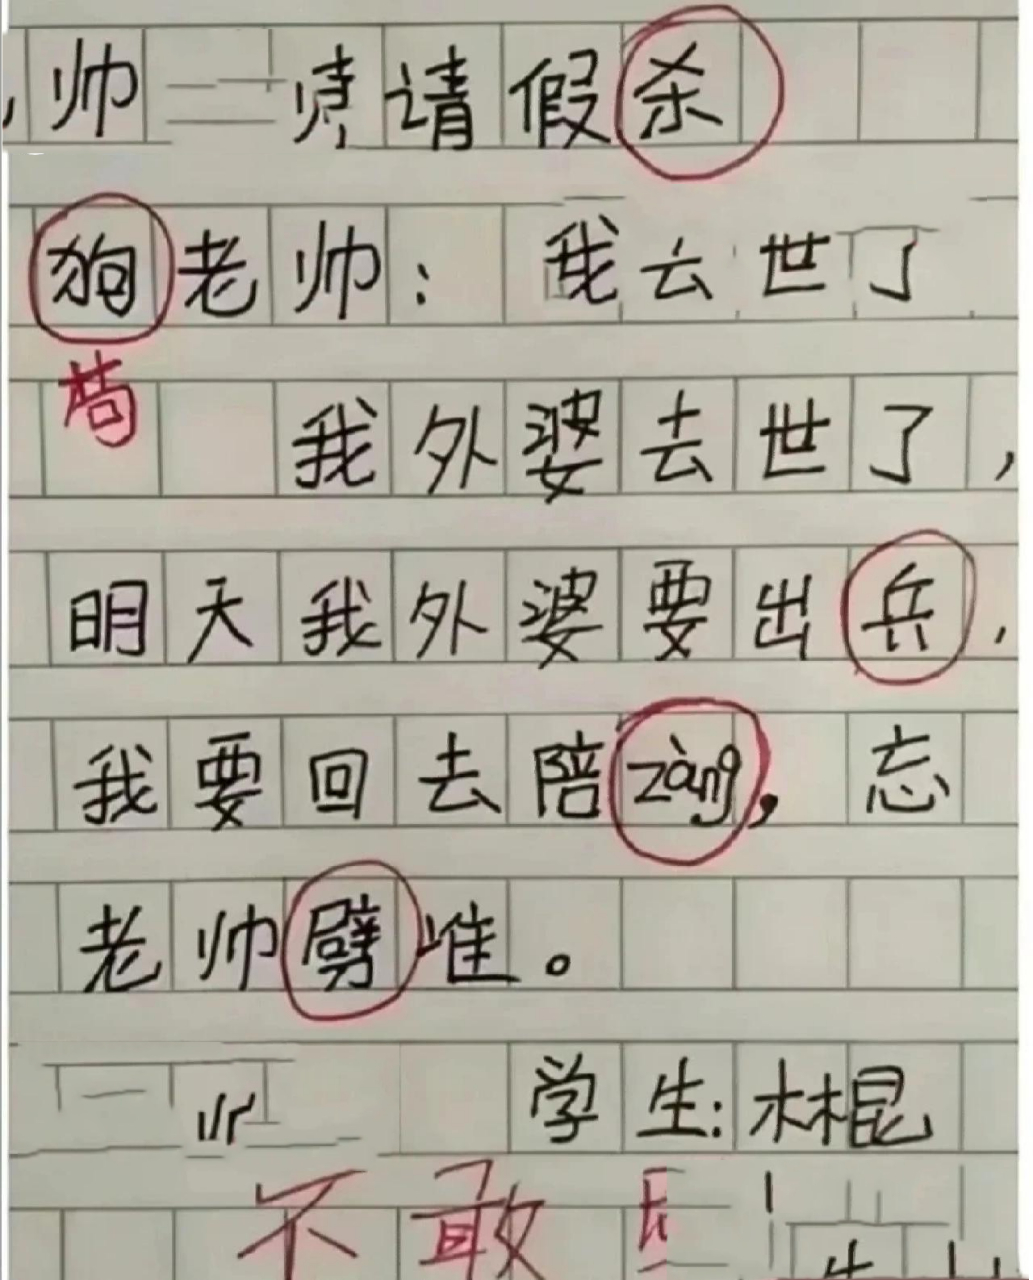 帅 请假杀
狗老帅：我云世了
苟
我外婆去世了，
明天我外婆要出兵，
我要回去陪zàng，忘
老帅劈准。
学生：木棍
不敢